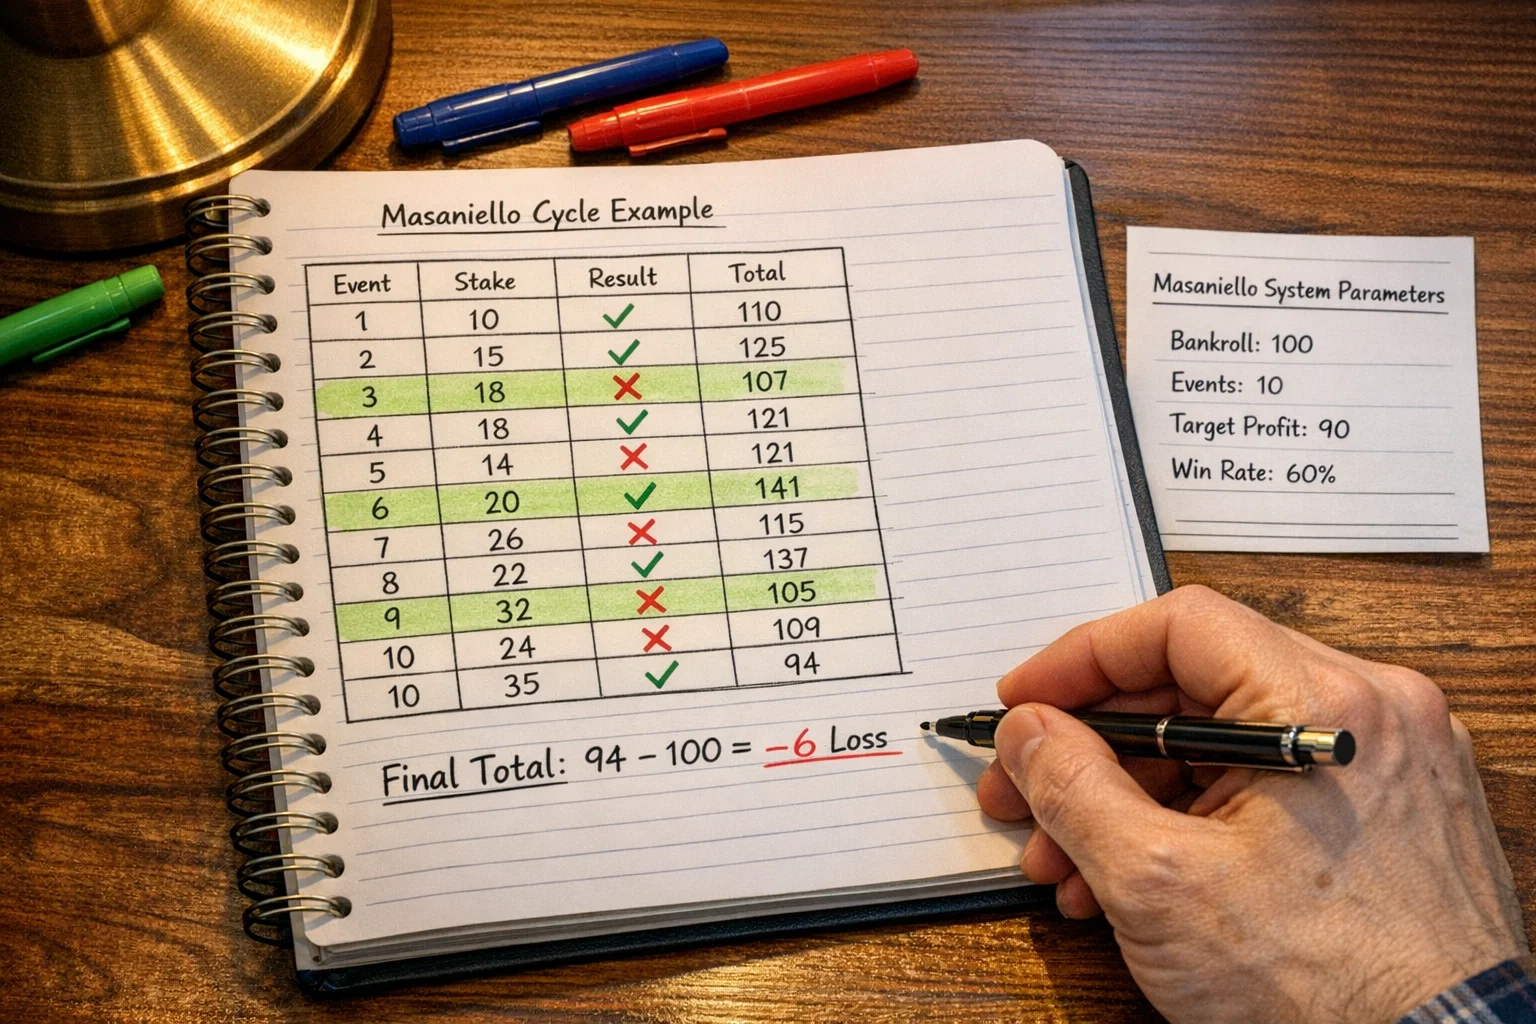 Masaniello Cycle Example
Event Stake Result Total
1 10 ✓ 110
2 15 ✓ 125
3 18 ✗ 107
4 18 ✓ 121
5 14 ✗ 121
6 20 ✓ 141
7 26 ✗ 115
8 22 ✓ 137
9 32 ✗ 105
10 24 ✗ 109
10 35 ✓ 94
Final Total: 94 – 100 = –6 Loss
Masaniello System Parameters
Bankroll: 100
Events: 10
Target Profit: 90
Win Rate: 60%